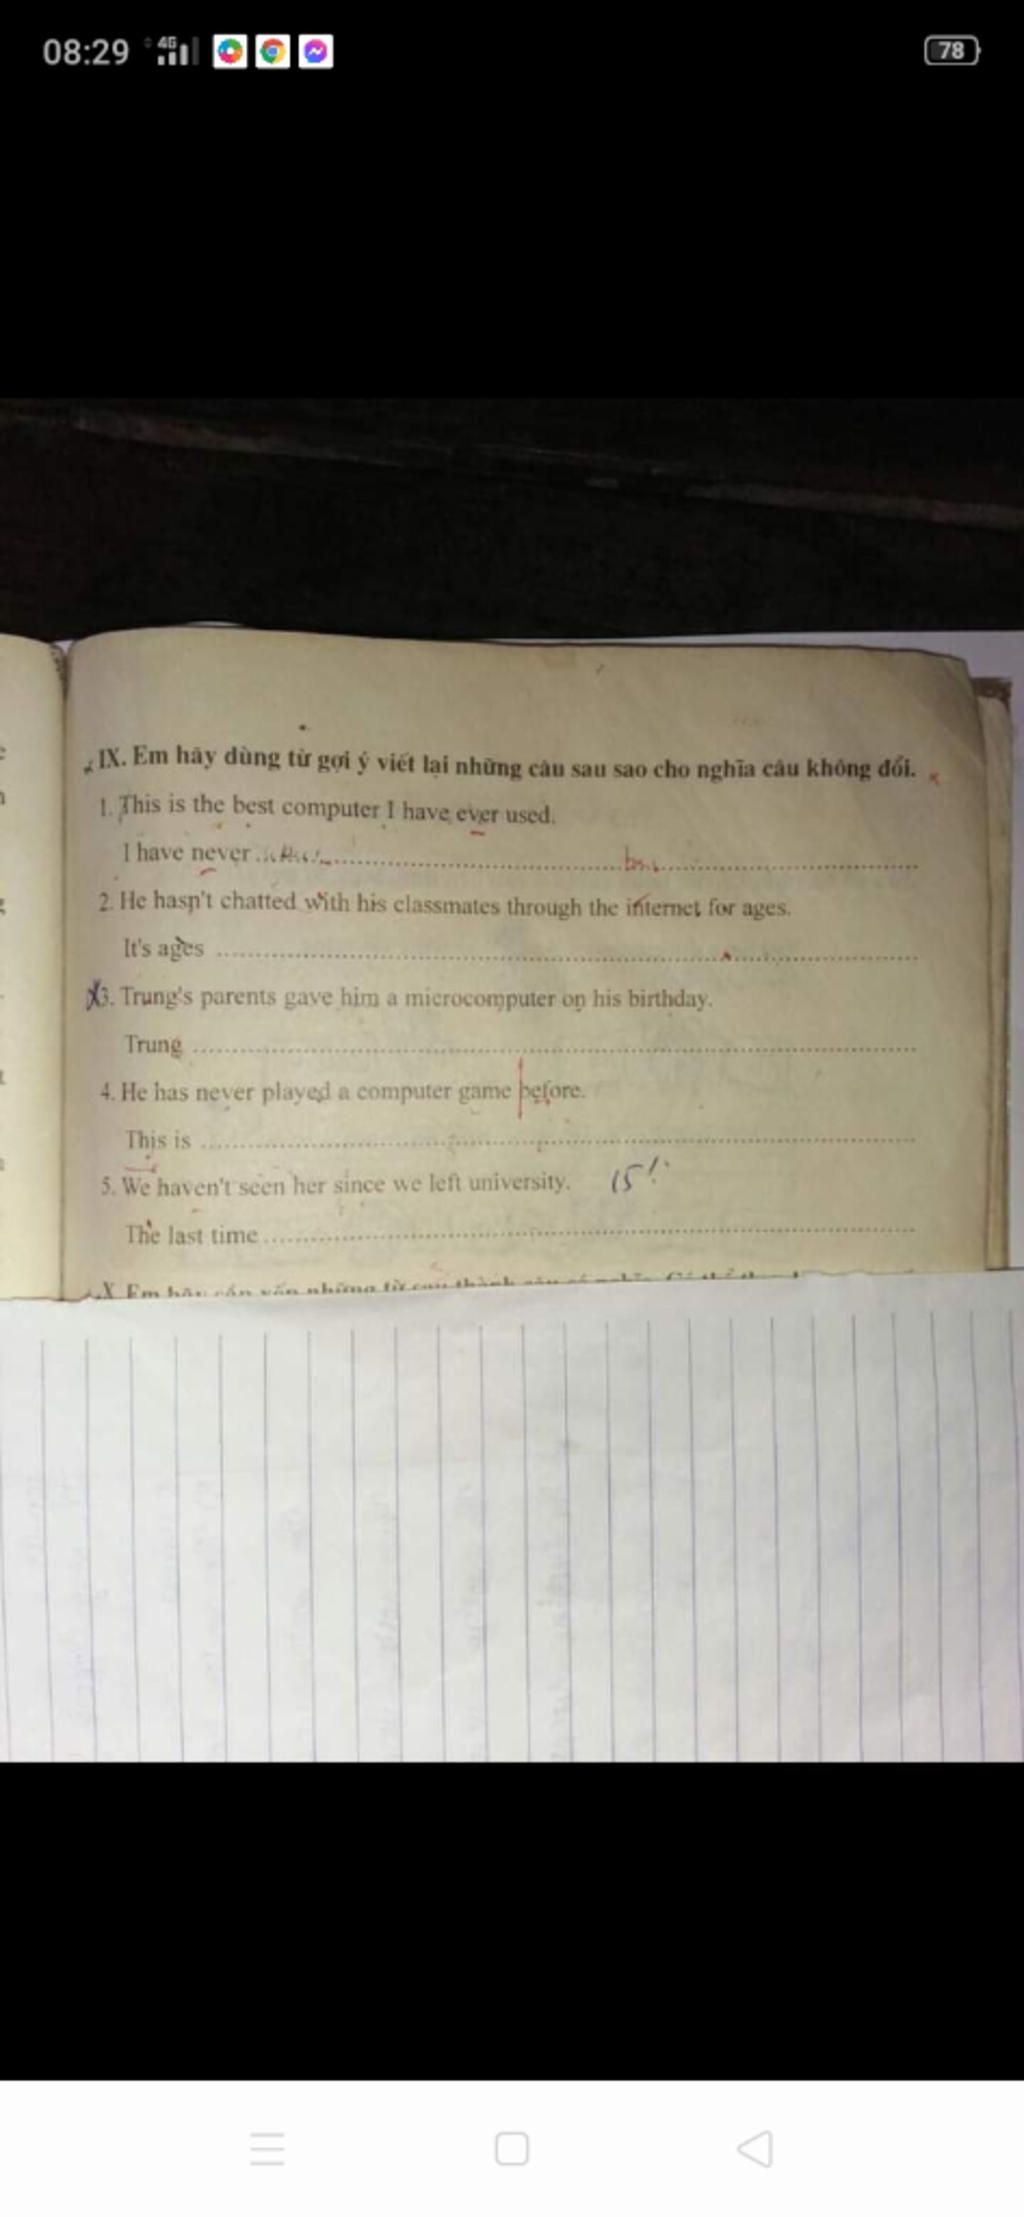 08:29
4G
78
IX. Em hãy dùng từ gợi ý viết lại những câu sau sao cho nghĩa câu không đổi.
1. This is the best computer I have ever used.
I have never
2. He hasn't chatted with his classmates through the internet for ages.
It's ages
3. Trung's parents gave him a microcomputer on his birthday.
Trung
4. He has never played a computer game before.
This is
5. We haven't seen her since we left university. 15'
The last time
X. Em hãy